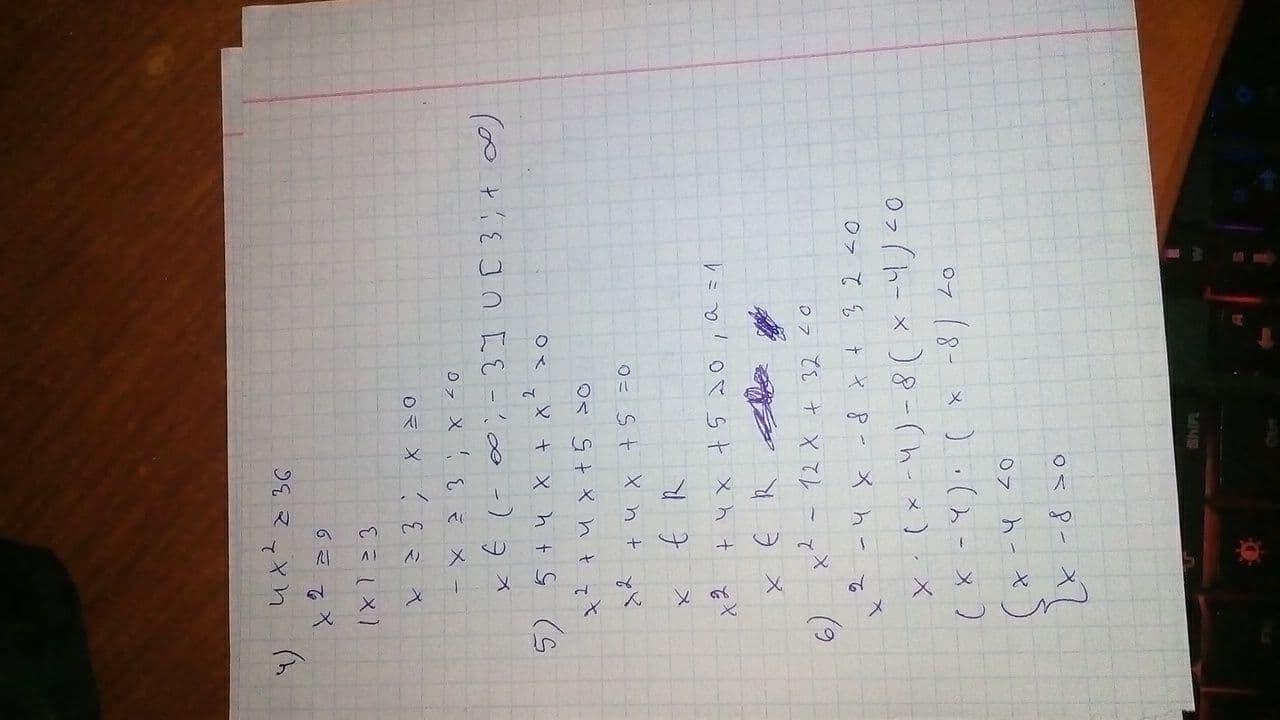 4) 4x² ≥ 36
x² ≥ 9
|x| ≥ 3
x ≥ 3 ; x ≥ 0
-x ≥ 3 ; x < 0
x ∈ (-∞ ; -3] ∪ [3 ; +∞)
5) 5 + 4x + x² > 0
x² + 4x + 5 > 0
x² + 4x + 5 = 0
x ∈ R
x² + 4x + 5 > 0, a = 1
x ∈ R
6) x² - 12x + 32 < 0
x² - 4x - 8x + 32 < 0
x · (x - 4) - 8(x - 4) < 0
(x - 4) · (x - 8) < 0
{ x - 4 < 0
{ x - 8 > 0
Shift
W
A